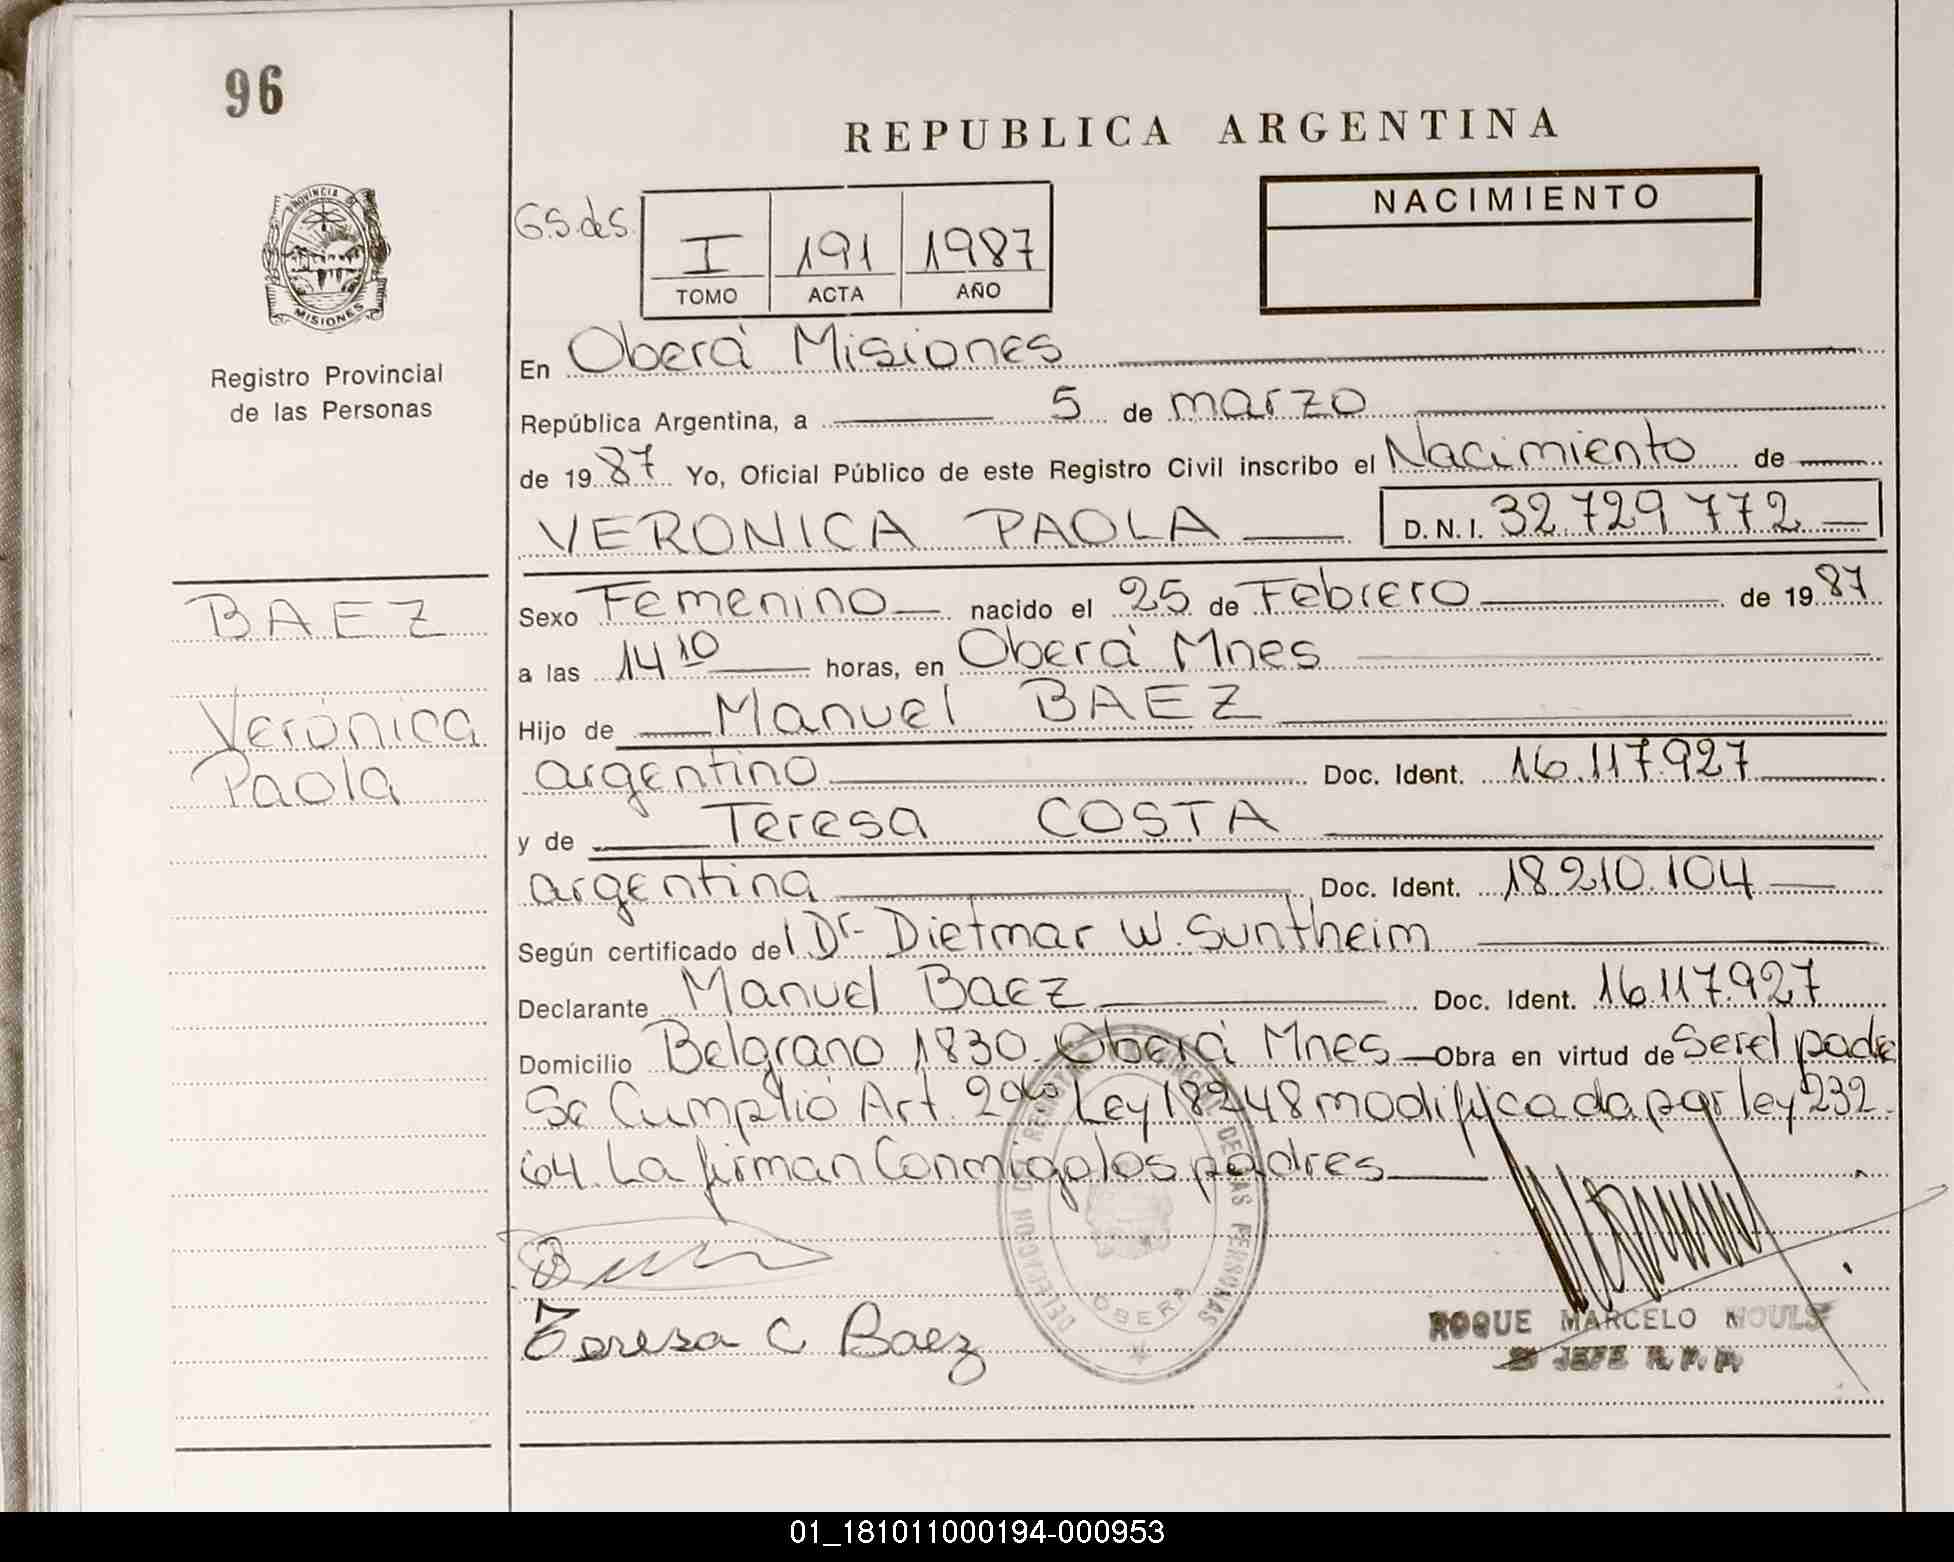 96
REPUBLICA ARGENTINA
PROVINCIA
MISIONES
Registro Provincial
de las Personas
G.S.deS.
I 191 1987
TOMO ACTA AÑO
NACIMIENTO
En Oberá Misiones
República Argentina, a 5 de marzo
de 1987 Yo, Oficial Público de este Registro Civil inscribo el Nacimiento de
VERONICA PAOLA D.N.I. 32.729.772
BAEZ
Verónica
Paola
Sexo Femenino nacido el 25 de Febrero de 1987
a las 14 10 horas, en Oberá Mnes
Hijo de Manuel BAEZ
argentino Doc. Ident. 16.117.927
y de Teresa COSTA
argentina Doc. Ident. 18.210.104
Según certificado del Dr. Dietmar W. Suntheim
Declarante Manuel Baez Doc. Ident. 16.117.927
Domicilio Belgrano 1830. Oberá Mnes Obra en virtud de Ser el padre
Se Cumplió Art. 2do Ley 18248 modificada por ley 232
64. La firman Conmigo los padres
Teresa C Baez
DE LAS PERSONAS
OBERA
ROQUE MARCELO
JEFE R.P.P.
01_181011000194-000953